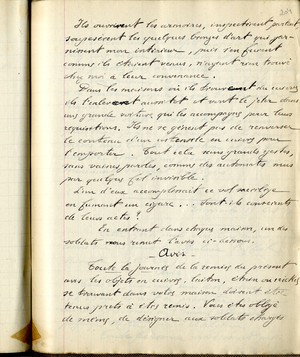 Ils ouvrirent les armoires, inspectèrent partout,
soupesèrent les quelques bronzes d'art qui gar-
nissent mon intérieur, puis s'en furent
comme ils étaient venus, n'ayant rien trouvé
chez moi à leur convenance.
Dans les maisons où ils trouvent du cuivre,
ils l'enlèvent aussitôt et vont le jeter dans
une grande voiture qui les accompagne pour leurs
réquisitions. Ils ne se gênent pas de renverser
le contenu d'un ustensile en cuivre pour
l'emporter. Tout cela sans grands gestes,
sans vaines paroles, comme des automates mus
par quelque fil invisible.
L'un d'eux accomplissait ce vol sacrilège
en fumant un cigare... Sont-ils conscients
de leurs actes ?
En entrant dans chaque maison, un des
soldats vous remet l'avis ci-dessous.
- Avis -
Toute la journée de la remise du présent
avis les objets en cuivre, laiton, étain ou nickel
se trouvant dans votre maison doivent être
tenus prêts à être remis. Vous êtes obligé
de moins, de désigner aux soldats chargés